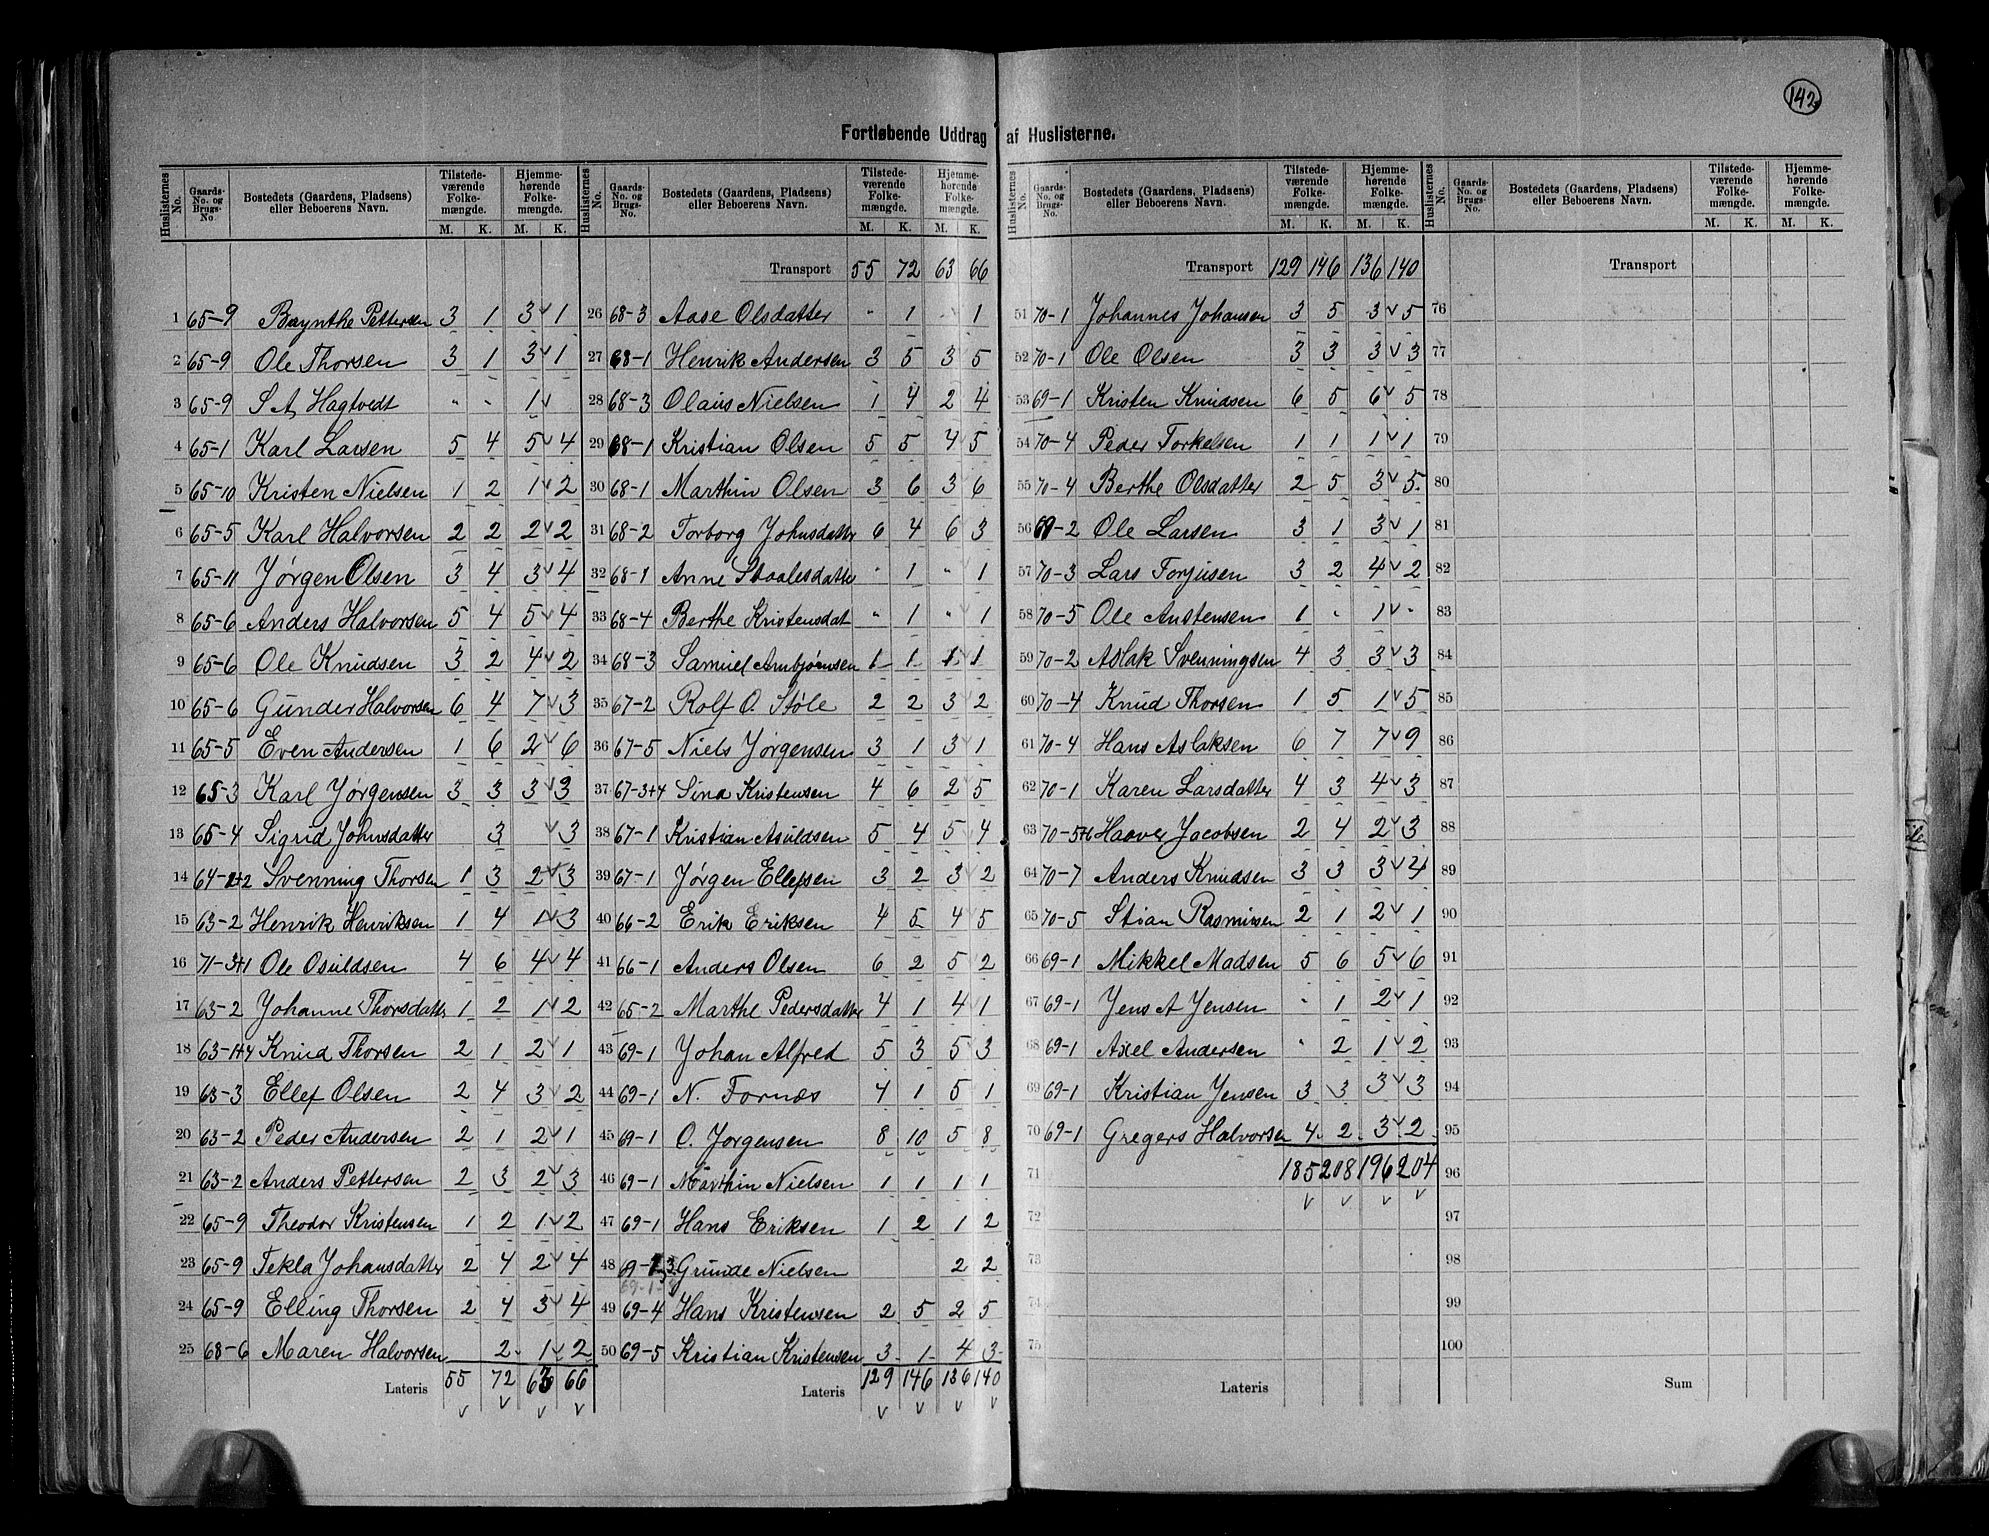 142
Fortløbende Uddrag af Huslisterne.
Huslisternes No. | Gaards-No. og Brugs-No. | Bostedets (Gaardens, Pladsens) eller Beboerens Navn. | Tilstedeværende Folkemængde. M. K. | Hjemmehørende Folkemængde. M. K.
1 65-9 Baynthe Pettersen 3 1 3 1
2 65-9 Ole Thorsen 3 1 3 1
3 65-9 S A Hagtvedt " " 1
4 65-1 Karl Larsen 5 4 5 4
5 65-10 Kristen Nielsen 1 2 1 2
6 65-5 Karl Halvorsen 2 2 2 2
7 65-11 Jørgen Olsen 3 4 3 4
8 65-6 Anders Halvorsen 5 4 5 4
9 65-6 Ole Knudsen 3 2 4 2
10 65-6 Gunder Halvorsen 6 4 7 3
11 65-5 Even Andersen 1 6 2 6
12 65-3 Karl Jørgensen 3 3 3 3
13 65-4 Sigrid Johnsdatter 3 3
14 Svenning Thorsen 1 3 2 3
15 63-2 Henrik Henriksen 1 4 1 3
16 71-3+1 Ole Osuldsen 4 6 4 4
17 63-2 Johanne Thorsdatter 1 2 1 2
18 63-1+4 Knud Thorsen 2 1 2 1
19 63-3 Ellef Olsen 2 4 3 2
20 63-2 Peder Andersen 2 1 2 1
21 63-2 Anders Pettersen 2 3 2 3
22 65-9 Theodor Kristensen 1 2 1 2
23 65-9 Tekla Johansdatter 2 4 2 4
24 65-9 Elling Thorsen 2 4 3 4
25 68-6 Maren Halvorsen 2 1 2
Lateris 55 72 63 66
Huslisternes No. | Gaards-No. og Brugs-No. | Bostedets (Gaardens, Pladsens) eller Beboerens Navn. | Tilstedeværende Folkemængde. M. K. | Hjemmehørende Folkemængde. M. K.
Transport 55 72 63 66
26 68-3 Aase Olsdatter " 1 " 1
27 68-1 Henrik Andersen 3 5 3 5
28 68-3 Olaus Nielsen 1 4 2 4
29 68-1 Kristian Olsen 5 5 4 5
30 68-1 Marthin Olsen 3 6 3 6
31 68-2 Torborg Johnsdatter 6 4 6 3
32 68-1 Anne Staalesdatter " 1 " 1
33 68-4 Berthe Kristensdat " 1 " 1
34 68-3 Samuel Arnbjørnsen 1 1 1 1
35 67-2 Rolf O. Støle 2 2 3 2
36 67-5 Niels Jørgensen 3 1 3 1
37 67-3+4 Sina Kristensen 4 6 2 5
38 67-1 Kristian Asuldsen 5 4 5 4
39 67-1 Jørgen Ellefsen 3 2 3 2
40 66-2 Erik Eriksen 4 5 4 5
41 66-1 Anders Olsen 6 2 5 2
42 65-2 Marthe Pedersdatter 4 1 4 1
43 69-1 Johan Alfred 5 3 5 3
44 69-1 N. Fornæs 4 1 5 1
45 69-1 O. Jørgensen 8 10 5 8
46 69-1 Marthin Nielsen 1 1 1 1
47 69-1 Hans Eriksen 1 2 1 2
48 Grunde Nielsen 2 2
49 69-4 Hans Kristensen 2 5 2 5
50 69-5 Kristian Kristensen 3 1 4 3
Lateris 129 146 136 140
Huslisternes No. | Gaards-No. og Brugs-No. | Bostedets (Gaardens, Pladsens) eller Beboerens Navn. | Tilstedeværende Folkemængde. M. K. | Hjemmehørende Folkemængde. M. K.
Transport 129 146 136 140
51 70-1 Johannes Johansen 3 5 3 5
52 70-1 Ole Olsen 3 3 3 3
53 69-1 Kristen Knudsen 6 5 6 5
54 70-4 Peder Torkelsen 1 1 1 1
55 70-4 Berthe Olsdatter 2 5 3 5
56 69-2 Ole Larsen 3 1 3 1
57 70-3 Lars Torjusen 3 2 4 2
58 70-5 Ole Austensen 1 " 1 "
59 70-2 Aslak Svenningsen 4 3 3 3
60 70-4 Knud Thorsen 1 5 1 5
61 70-4 Hans Aslaksen 6 7 7 9
62 70-1 Karen Larsdatter 4 3 4 3
63 70-5+6 Haaver Jacobsen 2 4 2 3
64 70-7 Anders Knudsen 3 3 3 4
65 70-5 Stian Rasmussen 2 1 2 1
66 69-1 Mikkel Madsen 5 6 5 6
67 69-1 Jens A Jensen " 1 2 1
68 69-1 Axel Andersen " 2 1 2
69 69-1 Kristian Jensen 3 3 3 3
70 69-1 Gregers Halvorsen 4 2 3 2
71 185 208 196 204
72
73
74
75
Lateris
Huslisternes No. | Gaards-No. og Brugs-No. | Bostedets (Gaardens, Pladsens) eller Beboerens Navn. | Tilstedeværende Folkemængde. M. K. | Hjemmehørende Folkemængde. M. K.
Transport
76
77
78
79
80
81
82
83
84
85
86
87
88
89
90
91
92
93
94
95
96
97
98
99
100
Sum